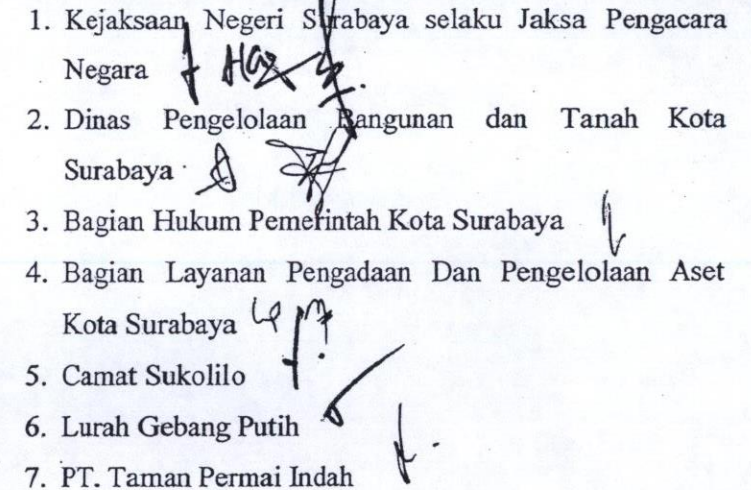 1. Kejaksaan Negeri Surabaya selaku Jaksa Pengacara
Negara
2. Dinas Pengelolaan Bangunan dan Tanah Kota
Surabaya
3. Bagian Hukum Pemerintah Kota Surabaya
4. Bagian Layanan Pengadaan Dan Pengelolaan Aset
Kota Surabaya
5. Camat Sukolilo
6. Lurah Gebang Putih
7. PT. Taman Permai Indah